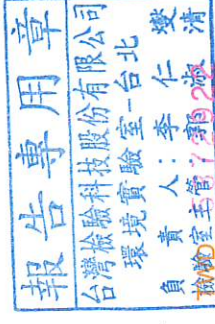 報告專用章
台灣檢驗科技股份有限公司
環境實驗室-台北
負責人：李仁燮
檢驗室主管 淑清